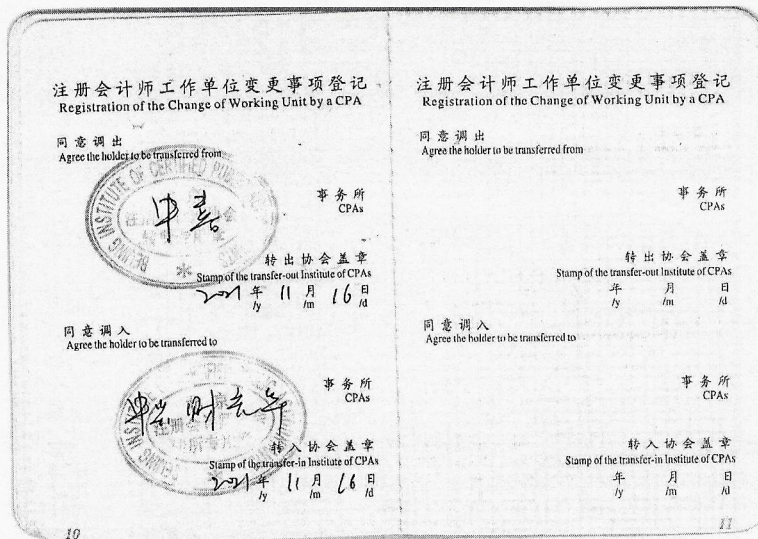 注册会计师工作单位变更事项登记
Registration of the Change of Working Unit by a CPA
同意调出
Agree the holder to be transferred from
BEIJING INSTITUTE OF CERTIFIED PUBLIC
中喜
事务所
CPAs
转出协会盖章
Stamp of the transfer-out Institute of CPAs
2021 年 11 月 16 日
/y /m /d
同意调入
Agree the holder to be transferred to
中兴财光华
注册会
事务所
CPAs
转入协会盖章
Stamp of the transfer-in Institute of CPAs
2021 年 11 月 16 日
/y /m /d
10
注册会计师工作单位变更事项登记
Registration of the Change of Working Unit by a CPA
同意调出
Agree the holder to be transferred from
事务所
CPAs
转出协会盖章
Stamp of the transfer-out Institute of CPAs
年 月 日
/y /m /d
同意调入
Agree the holder to be transferred to
事务所
CPAs
转入协会盖章
Stamp of the transfer-in Institute of CPAs
年 月 日
/y /m /d
11